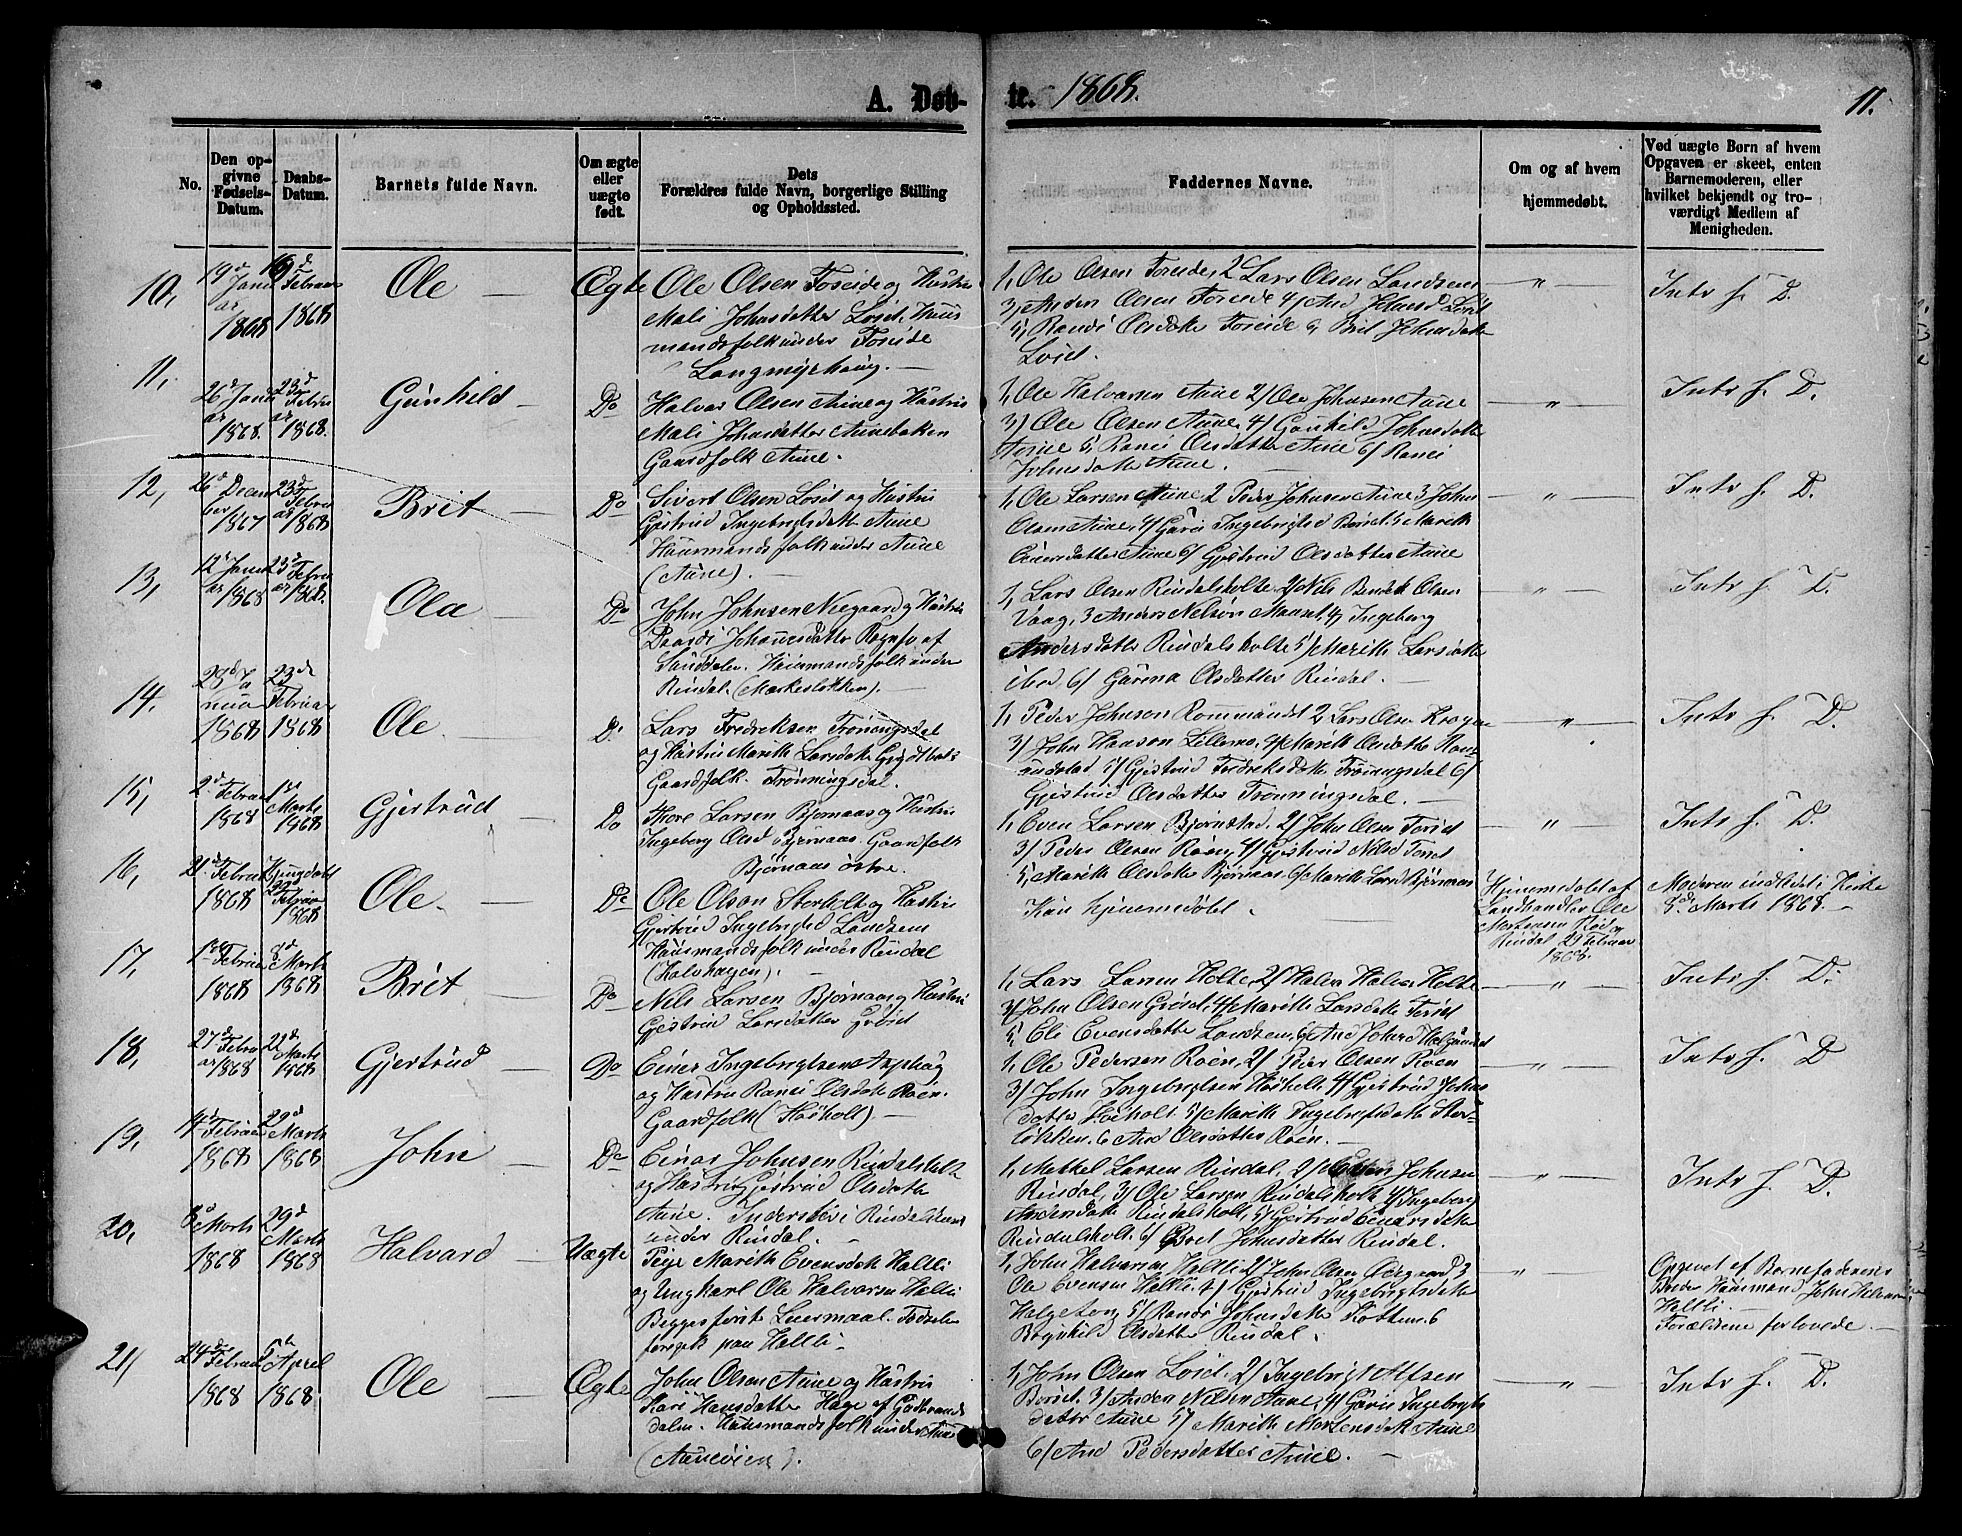 A. Døb-
te. 1868.
11.
No.
Den op-
givne
Fødsels-
Datum.
Daabs-
Datum.
Barnets fulde Navn.
Om ægte
eller
uægte
født.
Dets
Forældres fulde Navn, borgerlige Stilling
og Opholdssted.
Faddernes Navne.
Om og af hvem
hjemmedøbt.
Ved uægte Børn af hvem
Opgaven er skeet, enten
Barnemoderen, eller
hvilket bekjendt og tro-
værdigt Medlem af
Menigheden.
10,
19d Janu
ar
1868
Februar
1868
Ole
Ægte
Ole Olsen Foseide og Hustru
Mali Johnsdatter Løset, Huus
mandsfolk under Foseide
Langmyrhaug.
1, Ole Olsen Foseide, 2 Lars Olsen Landsem
3/ Anders Olsen Foseide 4/ And Johnsd Løset
5, Randi Olsdatter Foseide 6 Brit Johnsdatter
Løset.
"
Intr f. D.
11,
26d Janu
ar
1868.
23d
Febru
ar
1868.
Gunhild
Do
Halvor Olsen Aune og Hustru
Mali Johnsdatter Aunebakken
Gaardfolk Aune.
1, Ole Halvorsen Aune 2/ Ole Johnsen Aune
3/ Ole Olsen Aune, 4/ Gunhild Johnsdatter
Aune 5, Ranei Olsdatter Aune 6/ Ranei
Johnsdatter Aune.
"
Intr f. D.
12,
26d Decem
ber
1867
23d
Febru
ar
1868
Brit
Do
Sivert Olsen Løset og Hustru
Gjertrud Ingebrigtsdatter Aune
Huusmandsfolk under Aune
(Aune).
1, Ole Larsen Aune 2 Peder Johnsen Aune 3 John
Olsen Aune, 4/ Guri Ingebrigtsd Børset 5 Marith
Einersdatter Aune 6/ Gjertrud Olsdatter Aune
"
Intr f. D.
13,
12d Janu
ar 1868
23d
Febru
ar 1868.
Ola
Do
John Johnsen Negaard og Hustru
Baardi Johannesdatter Rognfo af
Sunddalen. Huusmandsfolk under
Rindal (Markesløkken).
1, Lars Olsen Rindalsholte 2/ Nils Bendik Olsen
Vaag, 3 Anders Nelson Maust 4/ Ingeborg
Andersdatter Rindalsholte 5/ Marith Larsdatter
ibid, 6/ Gurena Olsdatter Rindal.
"
Intr f. D.
14,
23d Ja
nuar
1868
23de
Februar
1868
Ole
Do
Lars Fredriksen Trønningsdal
og Hustru Marith Larsdatter
Gaardfolk. Trønningsdal.
1, Peder Johnson Rommundst 2, Lars Olsen
3/ John Hanson Lillemo, 4/ Marith Olsdatter
5/ Gjertrud Fredriksdatter Trønningsdal 6/
Gjertrud Olsdatter Trønningsdal.
"
Intr f. D.
15,
2d Februar
1868
1st
Marts
1868
Gjertrud
Do
Thore Larsen Bjørnaas og Hustru
Ingeborg Olsd Bjørnaas. Gaardfolk
Bjørnaas østre.
1, Even Larsen Bjørnstad, 2/ John Olsen Foset
3/ Peder Olsen Røen, 4/ Gjertrud Nilsd Foset
5, Marith Olsdatter Bjørnaas, 6/ Marith Larsd Bjørnaas
"
Intr f. D.
16,
21d Februar
1868
Hjemmedøbt
29d
Februar
1868
Ole
Do
Ole Olson Storholt og Hustru
Gjertrud Ingebrigtsd Landsem
Huusmandsfolk under Rindal
(Halvhagen).
Kun hjemmedøbt.
Hjemmedøbt af
Landhandler Ole
Mortensen
Rindal 29 Februar
1868.
Moderen indledet i Kirke
8de Marts 1868.
17,
Februar
1868
8d
Marts
1868
Brit
Do
Nils Larsen Bjørnaas og Hustru
Gjertrud Larsdatter Grøset
1, Lars Larsen Holte, 2/ Halvor Halvorsen Holte
3/ John Olsen Grøset, 4/ Marith Larsdatter Foset
5, Eli Evensdatter Landsem, 6/ And Johnsd
"
Intr f. D.
18,
27d Febru
ar 1868
22d
Marts
1868
Gjertrud
Do
Einer Ingebrigtsen Asphøg
og Hustru Ranei Olsdatter Røen.
Gaardfolk (Høiholt).
1, Ole Pedersen Røen, 2/ Peder Olsen Røen
3/ John Ingebrigtsen Høiholt 4/ Gjertrud Johns
datter Høiholt. 5/ Marith Ingebrigtsdatter Stor-
løkken. 6 And Olsdatter Røen.
"
Intr f. D
19,
4d Februar
1868
29d
Marts
1868
John
Do
Einar Johnsen Rindalsholt
og Hustru Gjertrud Olsdatter
Aune. Inderster i Rindalslund
under Rindal.
1, Mekkel Larsen Rindal, 2/ Johnsen
Rindal, 3/ Ole Larsen Rindalsholt 4/ Ingeborg
Andersdatter Rindalsholt, 5/ Gjertrud Einarsdatter
Rindalsholt. 6/ Bret Johnsdatter Rindal.
"
Intr f. D.
20,
8d Marts
1868
29d
Marts
1868
Halvard
Uægte
Pige Marith Evensdatter Haltli
og Ungkarl Ole Halvorsen Haltli
Begges første Leiermaal. Fødselen
foregik paa Haltli.
1, John Halvorsen Haltli 2/ John Olsen Ødegaard 3
Ole Evensen Haltli, 4/ Gjertrud Ingebrigtsdatter
Helgetog 5/ Randi Johnsdatter Flotten 6
Bøynhild Olsdatter Rindal.
"
Opgivet af Barnefaderens
Broder Huusmand John Halvorsen
Haltli.
Forældrene forlovede.
21/
24de Februar
1868
5te
April
1868
Ole
Ægte
John Olsen Aune og Hustru
Kari Hansdatter Hage af Gudbrands
dalen. Huusmandsfolk under Aune
(Auneøien).
1, John Olsen Løset. 2/ Ingebrigt Olsen
Børset. 3/ Anders Nilsen Aune, 4/ Guri Ingebrigts
datter Aune 5/ Marith Mortensdatter Aune
6/ And Pedersdatter Aune.
"
Intr f. D.